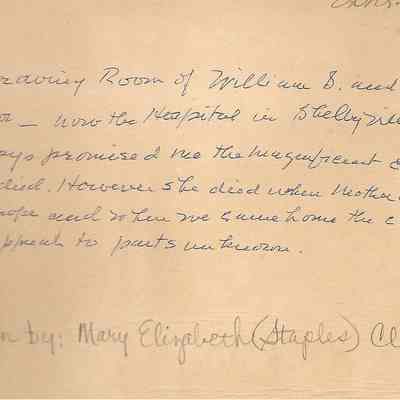 rawing Room of William S. and
or – now the Hospital in Shelbyvill
ays promised me the magnificent C
died. However she died when Mother
rope and when we came home the c
ppeals to parts unknown.
n by: Mary Elizabeth (Staples) Cl